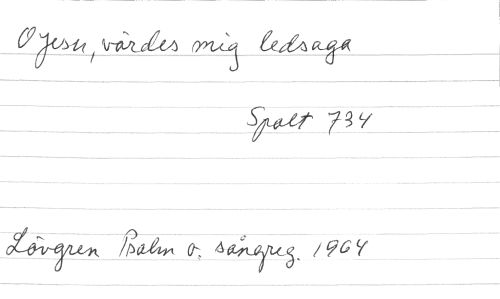 O Jesu, värdes mig ledsaga
Spalt 734
Lövgren Psalm o. sångreg. 1964